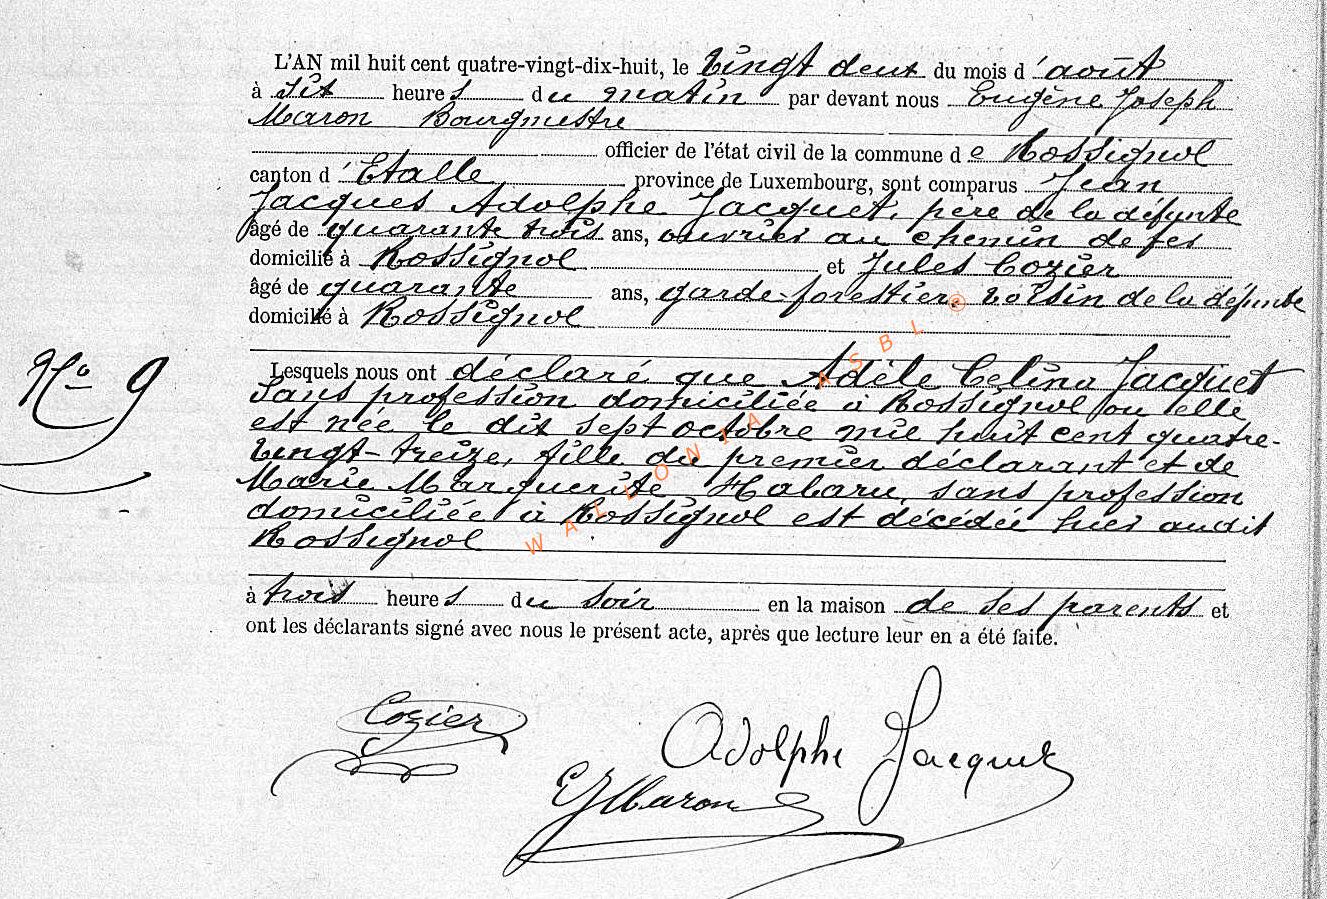 L'AN mil huit cent quatre-vingt-dix-huit, le vingt deux du mois d'août
à six heures du matin par devant nous Eugène Joseph
Maron Bourgmestre
officier de l'état civil de la commune de Rossignol
canton d'Etalle province de Luxembourg, sont comparus Jean
Jacques Adolphe Jacquet, père de la défunte
âgé de quarante trois ans, ouvrier au chemin de fer
domicilié à Rossignol et Jules Cozier
âgé de quarante ans, garde-forestier, voisin de la défunte
domicilié à Rossignol
Lesquels nous ont déclaré que Adèle Celina Jacquet
sans profession domiciliée à Rossignol où elle
est née le dix sept octobre mil huit cent quatre-
vingt-treize, fille du premier déclarant et de
Marie Marguerite Habaru, sans profession
domiciliée à Rossignol est décédée hier audit
Rossignol
à trois heures du soir en la maison de ses parents et
ont les déclarants signé avec nous le présent acte, après que lecture leur en a été faite.
No 9
Cozier
Adolphe Jacquet
EJMaron
WALLONIA ASBL ©